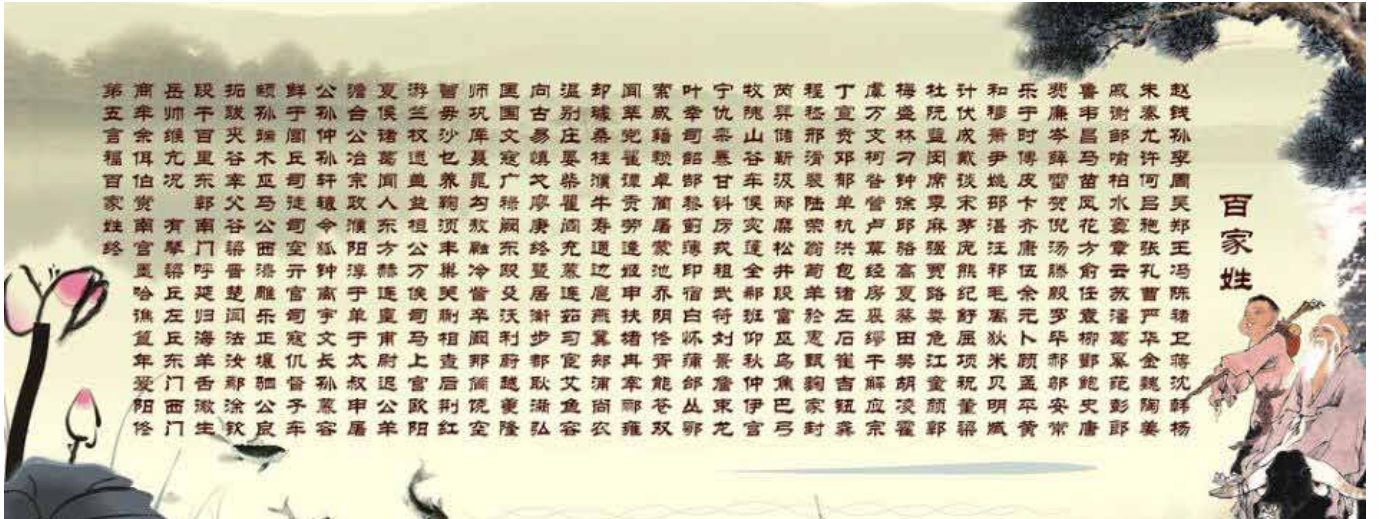 百家姓
赵钱孙李周吴郑王冯陈褚卫蒋沈韩杨
朱秦尤许何吕施张孔曹严华金魏陶姜
戚谢邹喻柏水窦章云苏潘葛奚范彭郎
鲁韦昌马苗凤花方俞任袁柳酆鲍史唐
费廉岑薛雷贺倪汤滕殷罗毕郝邬安常
乐于时傅皮卡齐康伍余元卜顾孟平黄
和穆萧尹姚邵湛汪祁毛禹狄米贝明臧
计伏成戴谈宋茅庞熊纪舒屈项祝董梁
杜阮蓝闵席季麻强贾路娄危江童颜郭
梅盛林刁钟徐邱骆高夏蔡田樊胡凌霍
虞万支柯昝管卢莫经房裘缪干解应宗
丁宣贲邓郁单杭洪包诸左石崔吉钮龚
程嵇邢滑裴陆荣翁荀羊於惠甄麴家封
芮羿储靳汲邴糜松井段富巫乌焦巴弓
牧隗山谷车侯宓蓬全郗班仰秋仲伊宫
宁仇栾暴甘钭厉戎祖武符刘景詹束龙
叶幸司韶郜黎蓟薄印宿白怀蒲邰丛鄂
索咸籍赖卓蔺屠蒙池乔阴佟胥能苍双
闻莘党翟谭贡劳逄姬申扶堵冉宰郦雍
却璩桑桂濮牛寿通边扈燕冀郏浦尚农
温别庄晏柴瞿阎充慕连茹习宦艾鱼容
向古易慎戈廖庾终暨居衡步都耿满弘
匡国文寇广禄阙东殴殳沃利蔚越夔隆
师巩厍聂晁勾敖融冷訾辛阚那简饶空
曾毋沙乜养鞠须丰巢关蒯相查后荆红
游竺权逯盖益桓公万俟司马上官欧阳
夏侯诸葛闻人东方赫连皇甫尉迟公羊
澹台公冶宗政濮阳淳于单于太叔申屠
公孙仲孙轩辕令狐钟离宇文长孙慕容
鲜于闾丘司徒司空亓官司寇仉督子车
颛孙端木巫马公西漆雕乐正壤驷公良
拓跋夹谷宰父谷梁晋楚闫法汝鄢涂钦
段干百里东郭南门呼延归海羊舌微生
岳帅缑亢况 有琴梁丘左丘东门西门
商牟佘佴伯赏南宫墨哈谯笪年爱阳佟
第五言福百家姓终